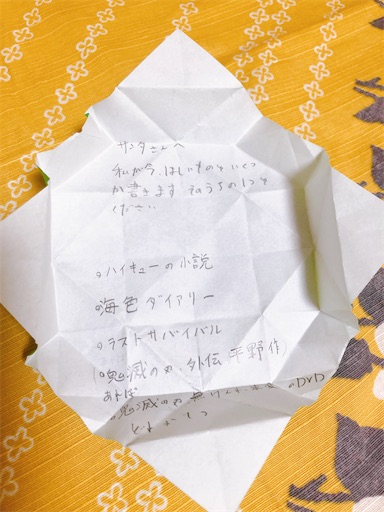 サンタさんへ
私が今、ほしいものをいくつ
か書きます そのうちの1つを
ください
・ハイキューの小説
・海色ダイアリー
・ラストサバイバル
(・鬼滅の刃、外伝 平野 作)
あれば
・鬼滅の刃 無げん列車 のDVD
どれか1つ